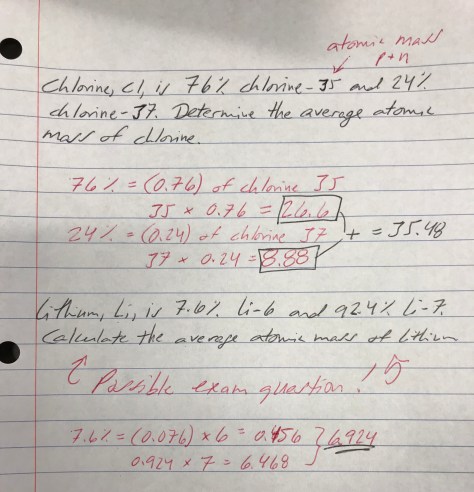 atomic mass
p + n
Chlorine, Cl, is 76% chlorine-35 and 24%
chlorine-37. Determine the average atomic
mass of chlorine.
76% = (0.76) of chlorine 35
35 x 0.76 = 26.6
24% = (0.24) of chlorine 37 + = 35.48
37 x 0.24 = 8.88
Lithium, Li, is 7.6% Li-6 and 92.4% Li-7.
Calculate the average atomic mass of lithium
Possible exam question!
7.6% = (0.076) x 6 = 0.456 } 6.924
0.924 x 7 = 6.468